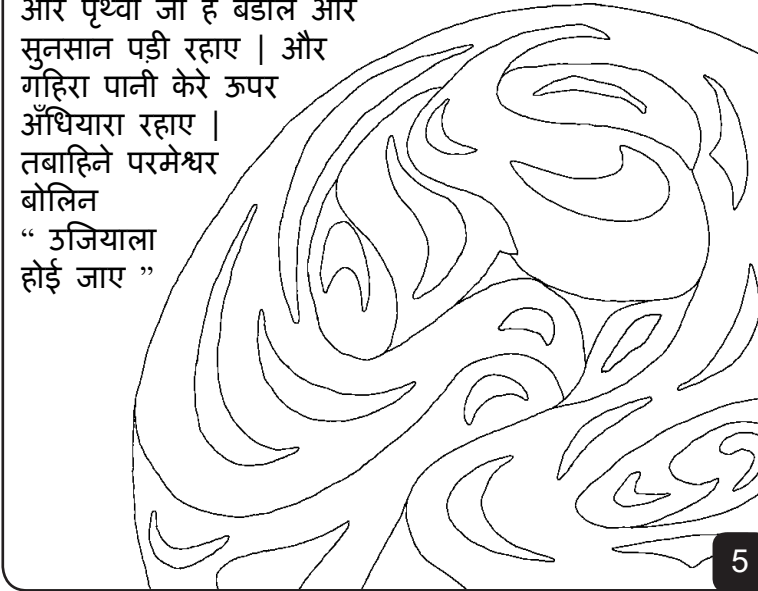 और पृथ्वी जो है बेडौल और
सुनसान पड़ी रहाए | और
गहिरा पानी केरे ऊपर
अँधियारा रहाए |
तबाहिने परमेश्वर
बोलिन
“ उजियाला
होई जाए ”
5